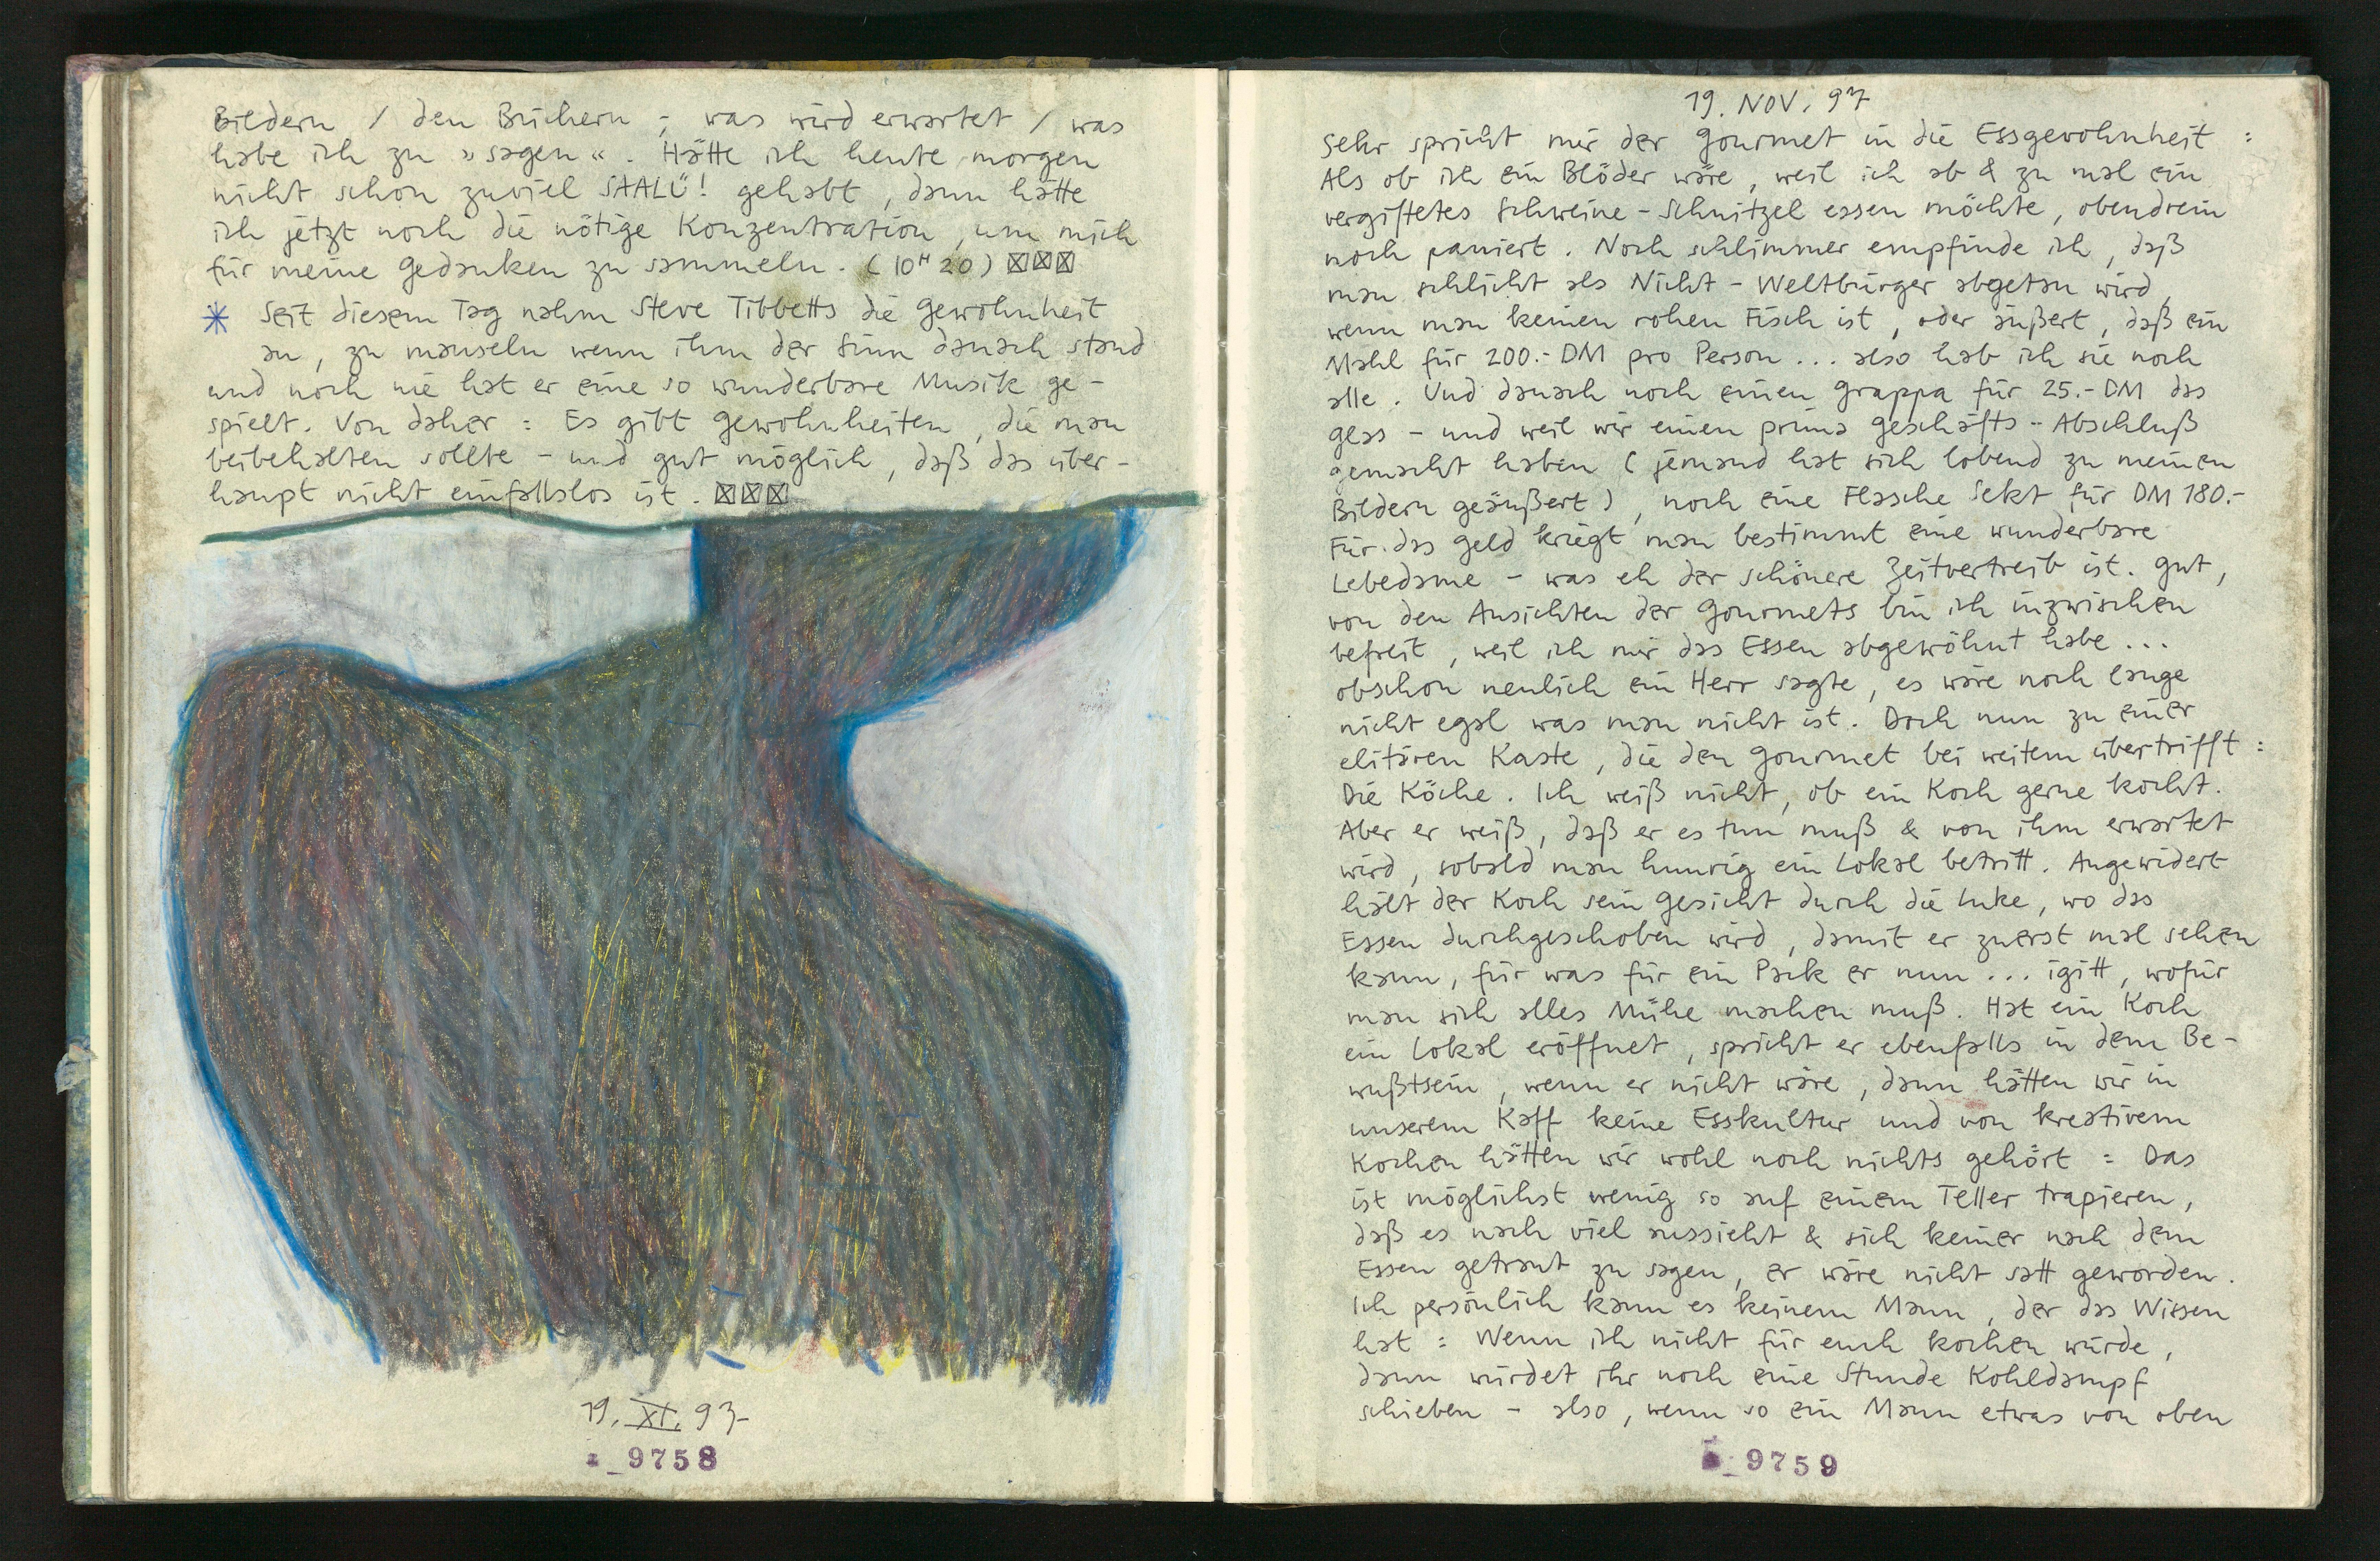 Bildern / den Büchern ; was wird erwartet / was
habe ich zu »sagen«. Hätte ich heute morgen
nicht schon zuviel SAALÜ! gehabt, dann hätte
ich jetzt noch die nötige Konzentration, um mich
für meine Gedanken zu sammeln. (10H 20) ☒☒☒
* Seit diesem Tag nahm Steve Tibbetts die Gewohnheit
an, zu mauseln wenn ihm der Sinn danach stand
und noch nie hat er eine so wunderbare Musik ge-
spielt. Von daher : Es gibt Gewohnheiten, die man
beibehalten sollte - und gut möglich, daß das über-
haupt nicht einfallslos ist. ☒☒☒
19. XI. 97
9758
19. NOV. 97
Sehr spricht mir der Gourmet in die Essgewohnheit :
Als ob ich ein Blöder wäre, weil ich ab & zu mal ein
vergiftetes Schweine-Schnitzel essen möchte, obendrein
noch paniert. Noch schlimmer empfinde ich, daß
man schlicht als Nicht-Weltbürger abgetan wird,
wenn man keinen rohen Fisch ist, oder äußert, daß ein
Mahl für 200.- DM pro Person ... also hab ich sie noch
alle. Und danach noch einen Grappa für 25.- DM das
Glas - und weil wir einen prima Geschäfts-Abschluß
gemacht haben (jemand hat sich lobend zu meinen
Bildern geäußert), noch eine Flasche Sekt für DM 180.-
Für das Geld kriegt man bestimmt eine wunderbare
Lebedame - was eh der schönere Zeitvertreib ist. Gut,
von den Ansichten der Gourmets bin ich inzwischen
befreit, weil ich mir das Essen abgewöhnt habe ...
obschon neulich ein Herr sagte, es wäre noch lange
nicht egal was man nicht ist. Doch nun zu einer
elitären Kaste, die den Gourmet bei weitem übertrifft :
Die Köche. Ich weiß nicht, ob ein Koch gerne kocht.
Aber er weiß, daß er es tun muß & von ihm erwartet
wird, sobald man hunrig ein Lokal betritt. Angewidert
hält der Koch sein Gesicht durch die Luke, wo das
Essen durchgeschoben wird, damit er zuerst mal sehen
kann, für was für ein Pack er nun ... igitt, wofür
man sich alles Mühe machen muß. Hat ein Koch
ein Lokal eröffnet, spricht er ebenfalls in dem Be-
wußtsein, wenn er nicht wäre, dann hätten wir in
unserem Kaff keine Esskultur und von kreativem
Kochen hätten wir wohl noch nichts gehört : Das
ist möglichst wenig so auf einem Teller trapieren,
daß es nach viel aussieht & sich keiner nach dem
Essen getraut zu sagen, er wäre nicht satt geworden.
Ich persönlich kann es keinem Mann, der das Wissen
hat : Wenn ich nicht für euch kochen würde,
dann würdet ihr noch eine Stunde Kohldampf
schieben - also, wenn so ein Mann etwas von oben
9759